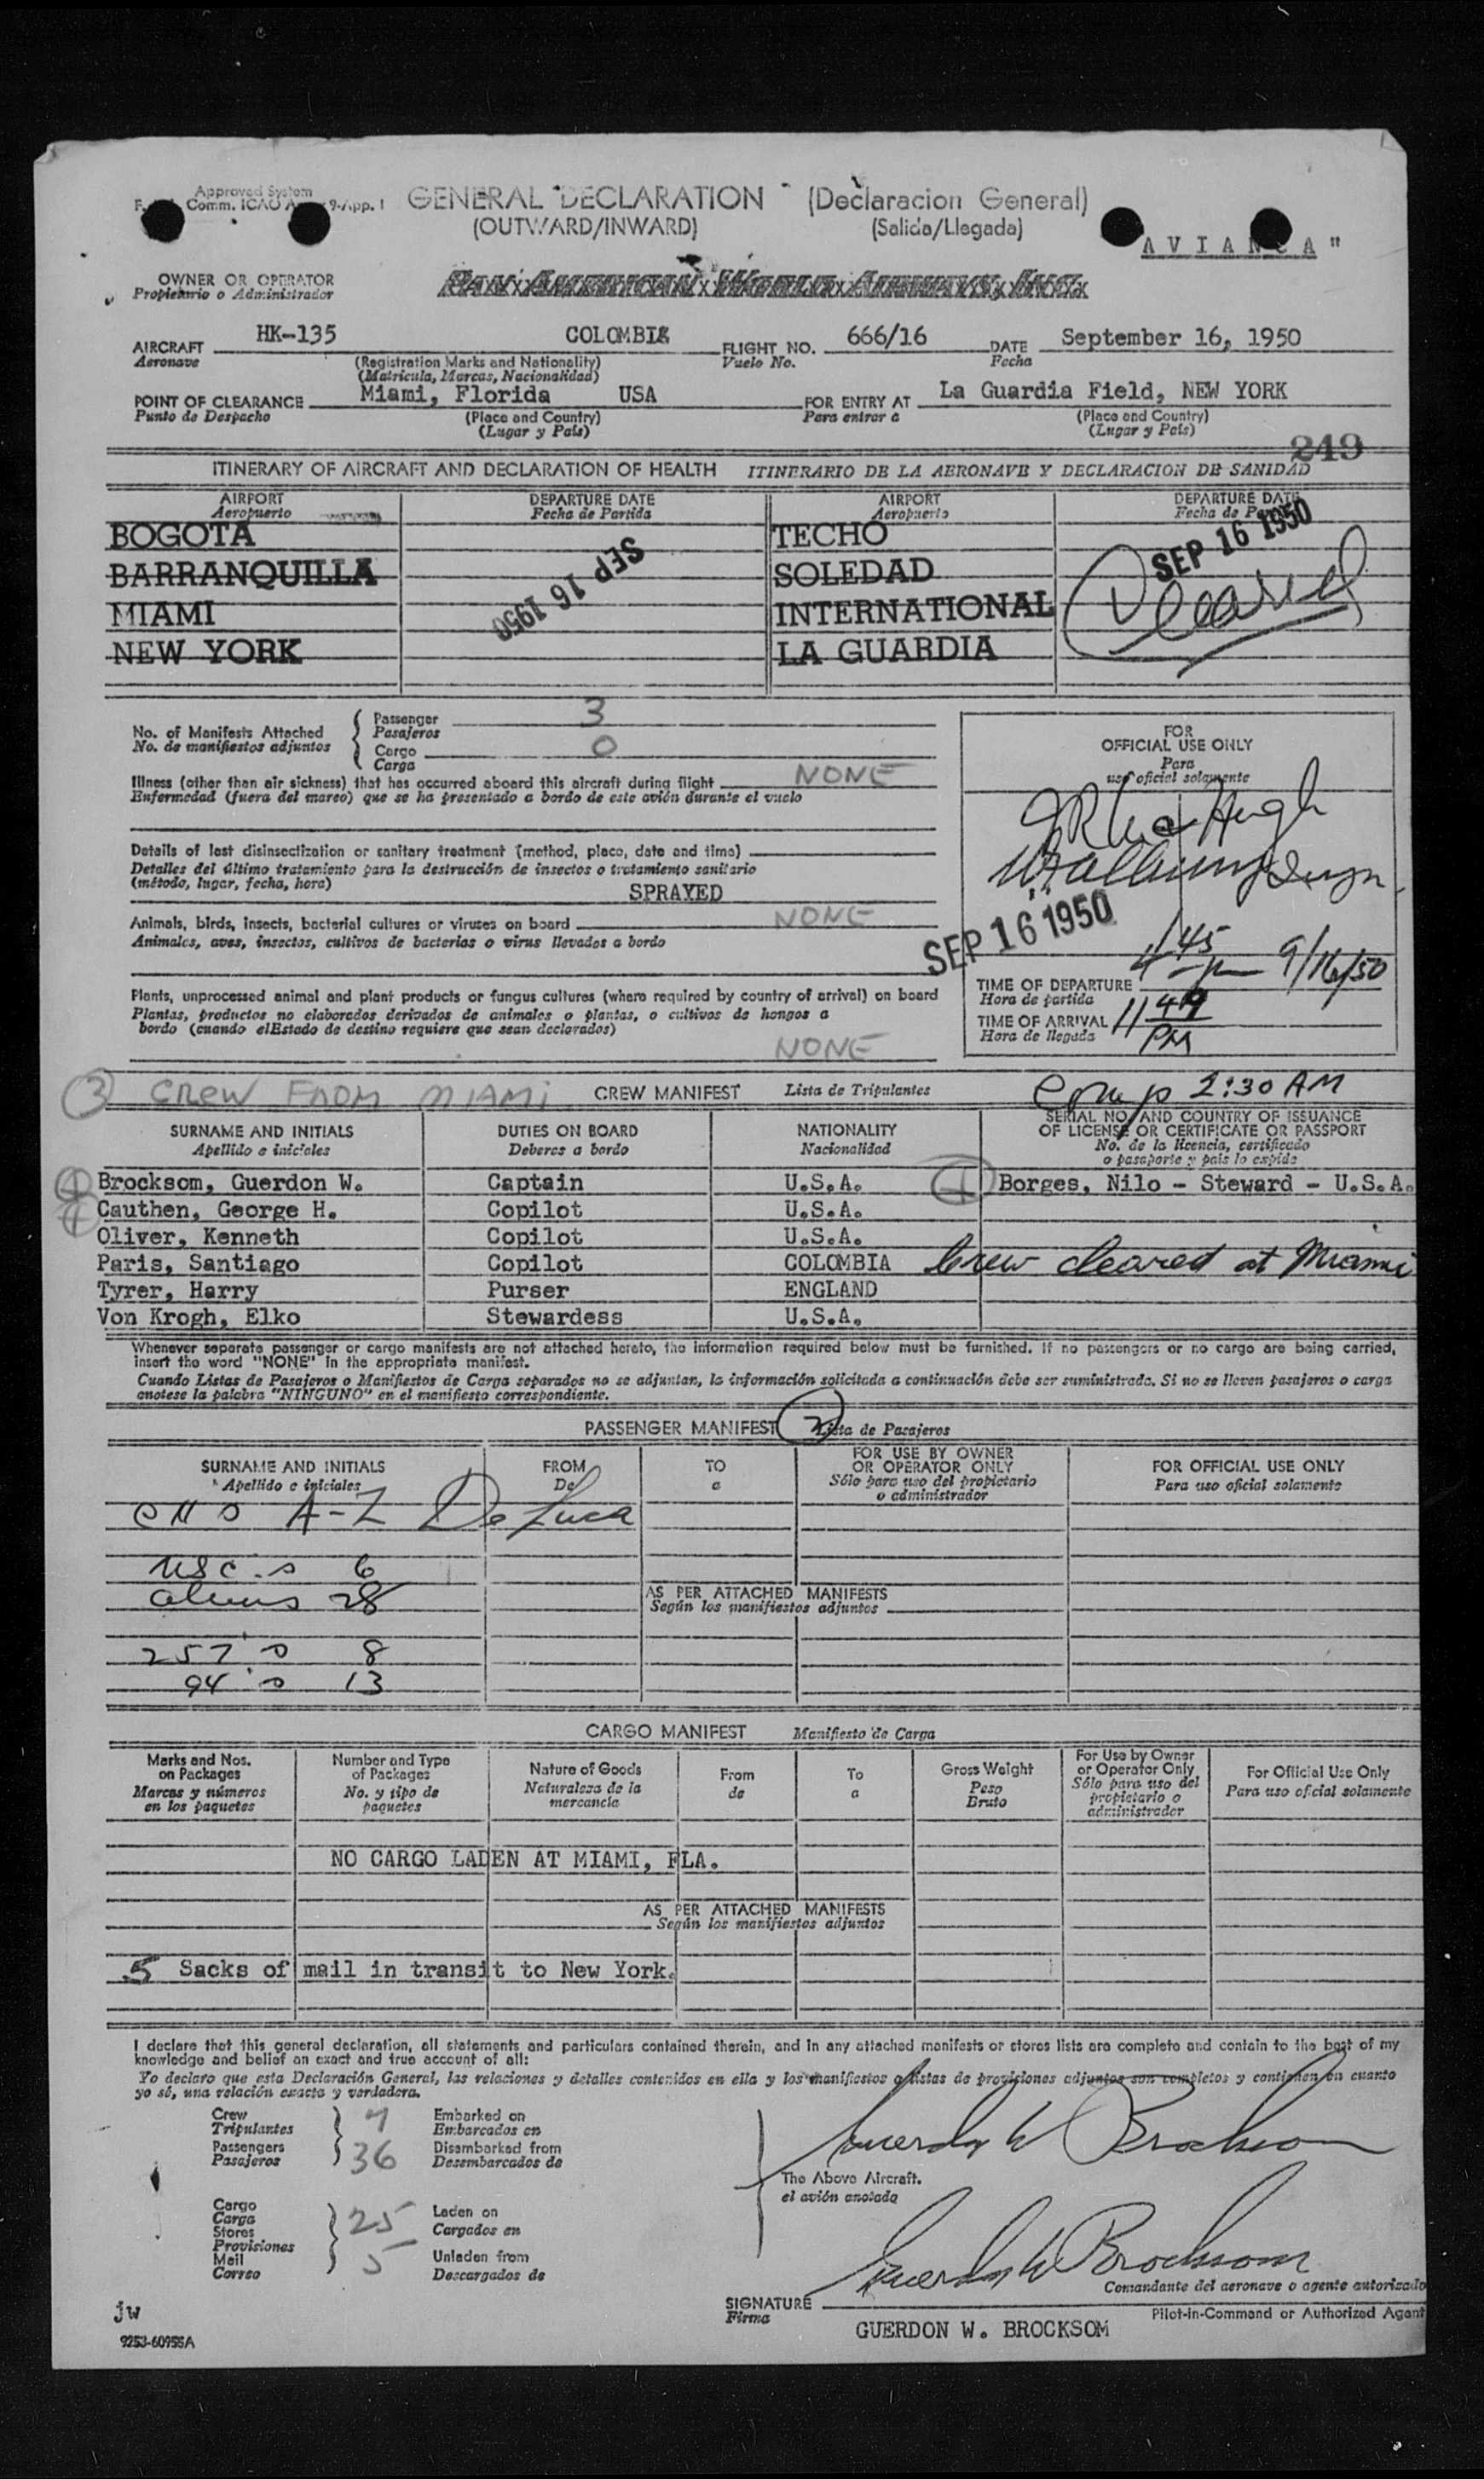 Approved System
Comm. ICAO 9-App. 1
GENERAL DECLARATION (Declaracion General)
(OUTWARD/INWARD) (Salida/Llegada)
AVIANCA"
OWNER OR OPERATOR
Propietario o Administrador
Pan American World Airways, Inc.
AIRCRAFT HK-135 COLOMBIA FLIGHT NO. 666/16 DATE September 16, 1950
Aeronave (Registration Marks and Nationality) Vuelo No. Fecha
(Matricula, Marcas, Nacionalidad)
POINT OF CLEARANCE Miami, Florida USA FOR ENTRY AT La Guardia Field, NEW YORK
Punto de Despacho (Place and Country) Para entrar a (Place and Country)
(Lugar y País) (Lugar y País)
249
ITINERARY OF AIRCRAFT AND DECLARATION OF HEALTH ITINERARIO DE LA AERONAVE Y DECLARACION DE SANIDAD
AIRPORT DEPARTURE DATE AIRPORT DEPARTURE DATE
Aeropuerto Fecha de Partida Aeropuerto Fecha de Partida
BOGOTA TECHO
BARRANQUILLA SOLEDAD
MIAMI INTERNATIONAL
NEW YORK LA GUARDIA
SEP 16 1950
SEP 16 1950
Cleared
No. of Manifests Attached Passenger 3
No. de manifiestos adjuntos Pasajeros
Cargo 0
Carga
Illness (other than air sickness) that has occurred aboard this aircraft during flight NONE
Enfermedad (fuera del mareo) que se ha presentado a bordo de este avión durante el vuelo
Details of last disinsectization or sanitary treatment (method, place, date and time)
Detalles del último tratamiento para la destrucción de insectos o tratamiento sanitario
(método, lugar, fecha, hora)
SPRAYED
Animals, birds, insects, bacterial cultures or viruses on board NONE
Animales, aves, insectos, cultivos de bacterias o virus llevados a bordo
Plants, unprocessed animal and plant products or fungus cultures (where required by country of arrival) on board
Plantas, productos no elaborados derivados de animales o plantas, o cultivos de hongos a
bordo (cuando elEstado de destino requiere que sean declarados)
NONE
FOR
OFFICIAL USE ONLY
Para
uso oficial solamente
SEP 16 1950
TIME OF DEPARTURE 445 9/16/50
Hora de partida
TIME OF ARRIVAL 1149
Hora de llegada PM
3 CREW FROM MIAMI CREW MANIFEST Lista de Tripulantes 2:30 AM
SURNAME AND INITIALS DUTIES ON BOARD NATIONALITY SERIAL NO. AND COUNTRY OF ISSUANCE
OF LICENSE OR CERTIFICATE OR PASSPORT
Apellido e iniciales Deberes a bordo Nacionalidad No. de la licencia, certificado
o pasaporte y pais lo expide
Brocksom, Guerdon W. Captain U.S.A. Borges, Nilo - Steward - U.S.A.
Cauthen, George H. Copilot U.S.A.
Oliver, Kenneth Copilot U.S.A.
Paris, Santiago Copilot COLOMBIA Crew cleared at Miami
Tyrer, Harry Purser ENGLAND
Von Krogh, Elko Stewardess U.S.A.
Whenever separate passenger or cargo manifests are not attached hereto, the information required below must be furnished. If no passengers or no cargo are being carried,
insert the word "NONE" in the appropriate manifest.
Cuando Listas de Pasajeros o Manifiestos de Carga separados no se adjuntan, la información solicitada a continuación debe ser suministrada. Si no se lleven pasajeros o carga
anotese la palabra "NINGUNO" en el manifiesto correspondiente.
PASSENGER MANIFEST 2 Lista de Pasajeros
SURNAME AND INITIALS FROM TO FOR USE BY OWNER
OR OPERATOR ONLY FOR OFFICIAL USE ONLY
Apellido e iniciales De a Sólo para uso del propietario
o administrador Para uso oficial solamente
A-Z De Luca
USC.s 6
Aliens 28
AS PER ATTACHED MANIFESTS
Según los manifiestos adjuntos
257's 8
94's 13
CARGO MANIFEST Manifiesto de Carga
Marks and Nos.
on Packages
Marcas y números
en los paquetes
Number and Type
of Packages
No. y tipo de
paquetes
Nature of Goods
Naturaleza de la
mercancía
From
de
To
a
Gross Weight
Peso
Bruto
For Use by Owner
or Operator Only
Sólo para uso del
propietario o
administrador
For Official Use Only
Para uso oficial solamente
NO CARGO LADEN AT MIAMI, FLA.
AS PER ATTACHED MANIFESTS
Según los manifiestos adjuntos
5 Sacks of mail in transit to New York.
I declare that this general declaration, all statements and particulars contained therein, and in any attached manifests or stores lists are complete and contain to the best of my
knowledge and belief an exact and true account of all:
Yo declaro que esta Declaración General, las relaciones y detalles contenidos en ella y los manifiestos o listas de provisiones adjuntos son completos y contienen en cuanto
yo sé, una relación exacta y verdadera.
Crew 7 Embarked on
Tripulantes Embarcados en
Passengers 36 Disembarked from
Pasajeros Desembarcados de
Guerdon W Brocksom
The Above Aircraft.
el avión anotado
Cargo
Carga 25 Laden on
Stores Cargados en
Provisiones
Mail 5 Unladen from
Correo Descargados de
Guerdon W Brocksom
Comandante del aeronave o agente autorizado
SIGNATURE
Firma
Pilot-in-Command or Authorized Agent
GUERDON W. BROCKSOM
jw
9253-6095SA